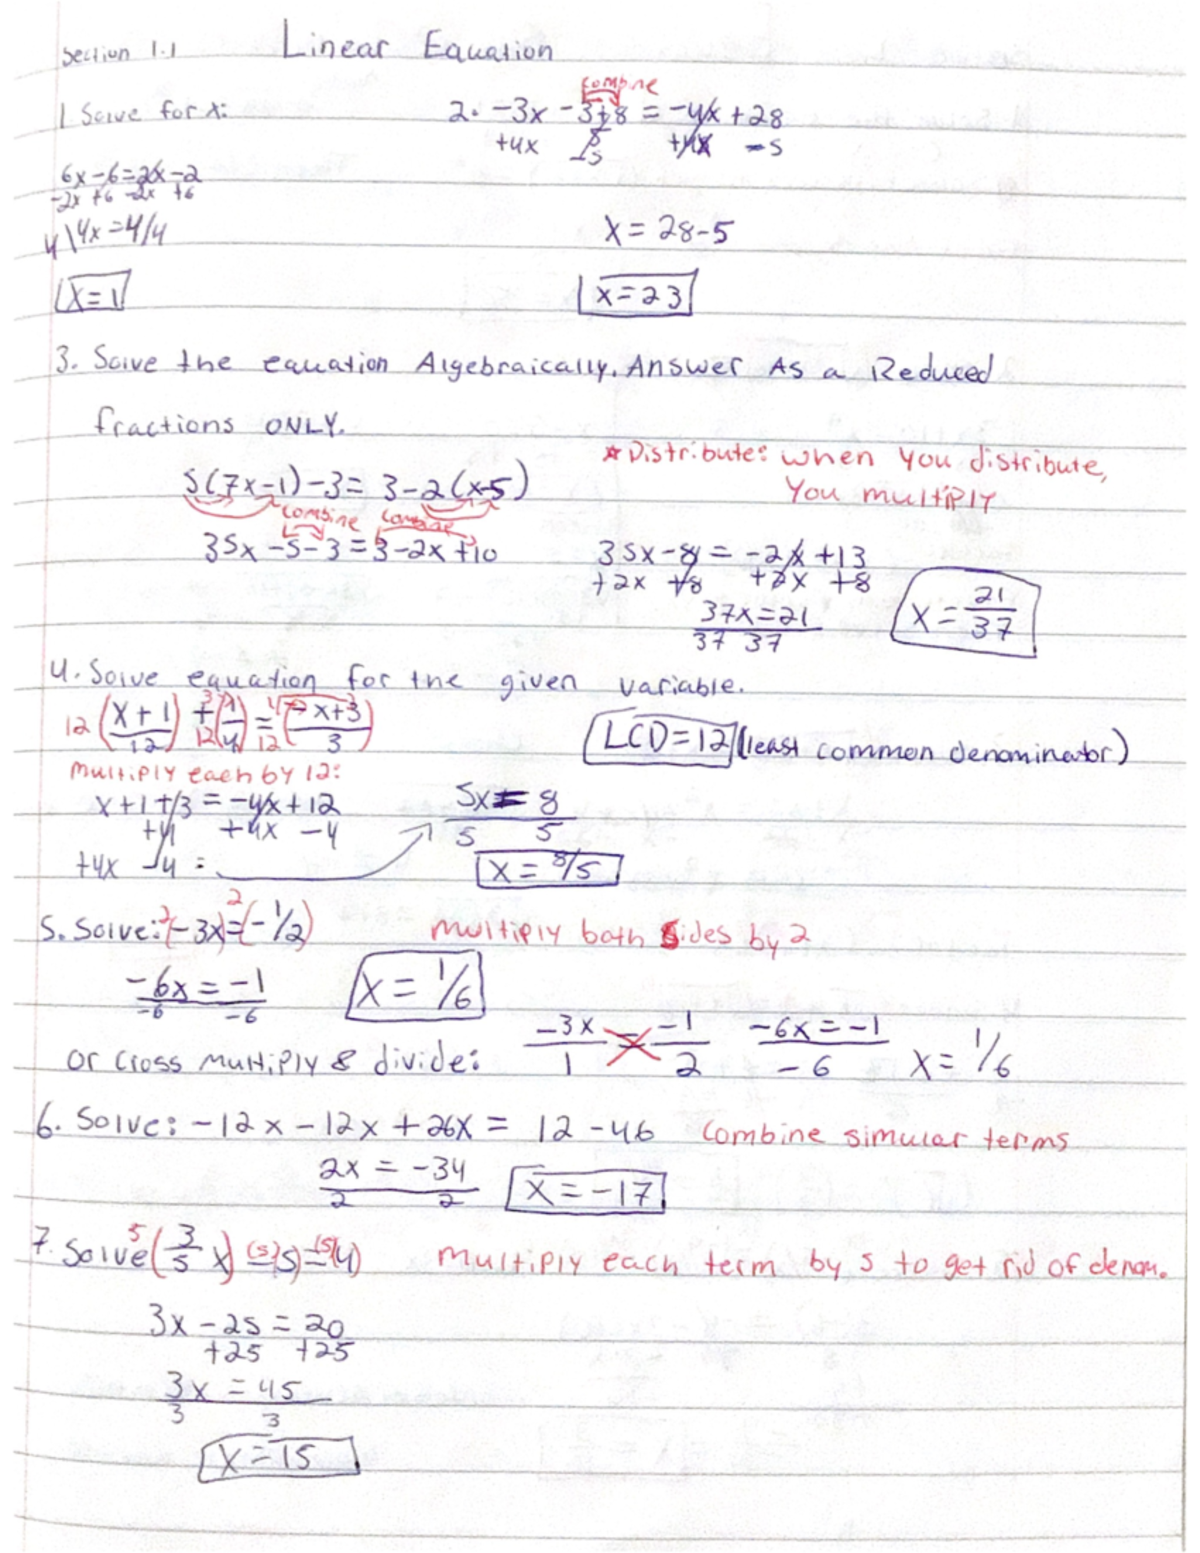 Section 1.1 Linear Equation
1 Solve for x:
6x-6=2x-2
-2x +6 -2x +6
4\4x=4/4
x=1
combine
2. -3x -3+8 = -4x +28
+4x 5 +4x -5
-5
x = 28-5
x=23
3. Solve the equation Algebraically. Answer As a Reduced
fractions ONLY.
* Distribute: when you distribute,
You multiply
5(7x-1)-3= 3-2(x-5)
combine combine
35x -5-3=3-2x+10
35x-8 = -2x+13
+2x +8 +2x +8
37x=21
37 37
x= 21/37
4. Solve equation for the given variable.
12 (x+1/12) + 12(1/4) = 12(-x+3/3)
LCD=12 (least common denominator)
multiply each by 12:
x+1+3 = -4x+12
+4 +4x -4
+4x -4 =
5x= 8
5 5
x= 8/5
5. Solve: 2(-3x)=2(-1/2) multiply both sides by 2
-6x = -1
-6 -6
x = 1/6
or cross multiply & divide: -3x/1 = -1/2 -6x = -1
-6
x= 1/6
6. Solve: -12x -12x +26x = 12 -46 combine simular terms
2x = -34
2 2
x=-17
7. Solve 5(3/5 x) (5)-5)=(5)4) multiply each term by 5 to get rid of denom.
3x -25 = 20
+25 +25
3x = 45
3 3
x=15